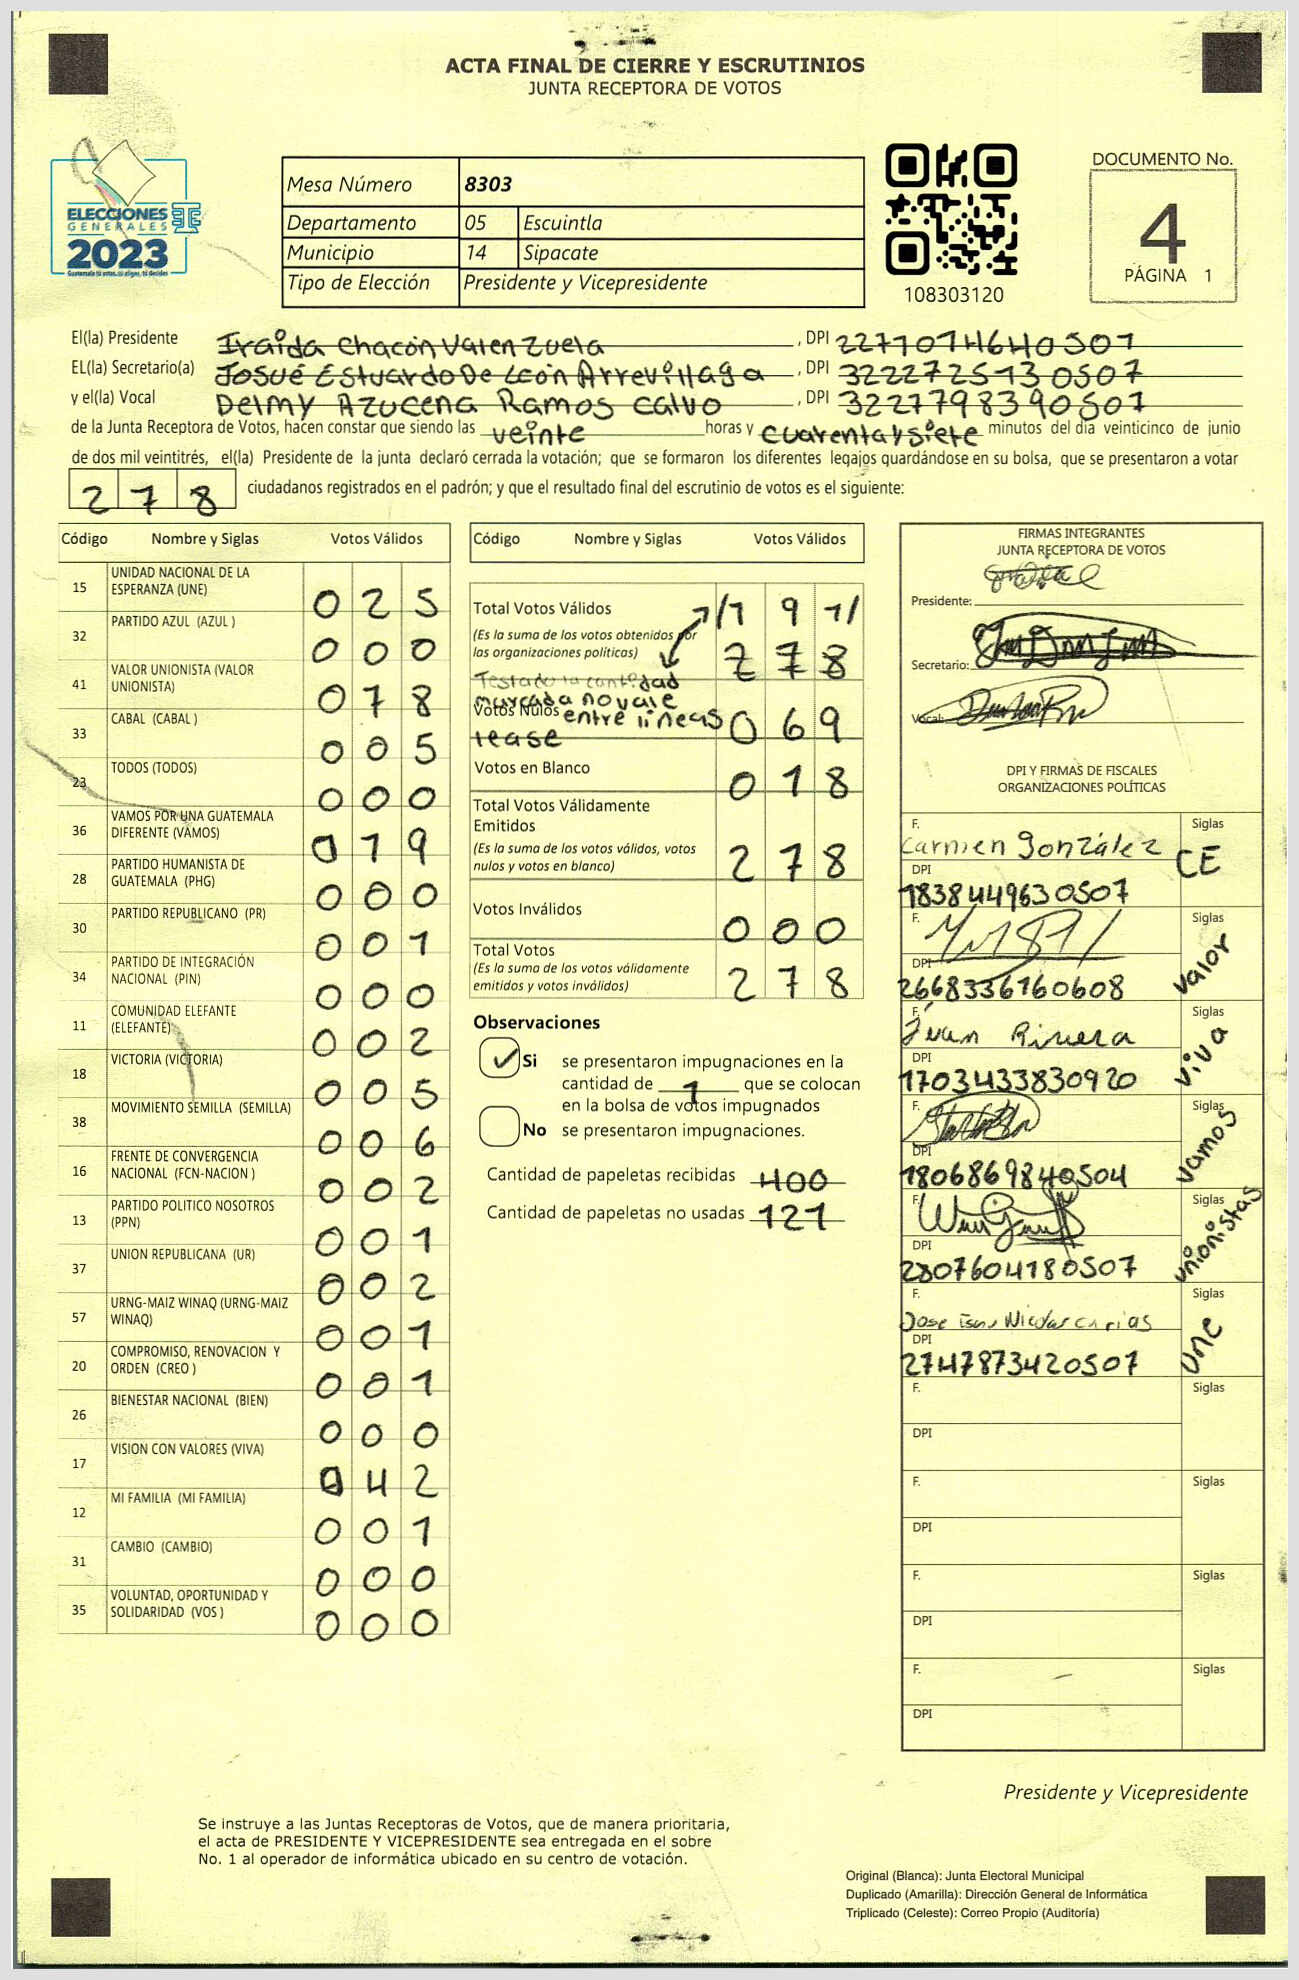 ACTA FINAL DE CIERRE Y ESCRUTINIOS
JUNTA RECEPTORA DE VOTOS
ELECCIONES
GENERALES
2023
Guatemala tú votas, tú eliges, tú decides
Mesa Número 8303
Departamento 05 Escuintla
Municipio 14 Sipacate
Tipo de Elección Presidente y Vicepresidente
108303120
DOCUMENTO No.
4
PÁGINA 1
El(la) Presidente Iraida Chacón Valenzuela, DPI 2271074640501
EL(la) Secretario(a) Josué Estuardo De León Arrevillaga, DPI 3222725130507
y el(la) Vocal Delmy Azucena Ramos Calvo, DPI 3227798390507
de la Junta Receptora de Votos, hacen constar que siendo las veinte horas y cuarenta y siete minutos del día veinticinco de junio
de dos mil veintitrés, el(la) Presidente de la junta declaró cerrada la votación; que se formaron los diferentes legajos quardándose en su bolsa, que se presentaron a votar
278 ciudadanos registrados en el padrón; y que el resultado final del escrutinio de votos es el siguiente:
Código Nombre y Siglas Votos Válidos
15 UNIDAD NACIONAL DE LA ESPERANZA (UNE) 025
32 PARTIDO AZUL (AZUL ) 000
41 VALOR UNIONISTA (VALOR UNIONISTA) 078
33 CABAL (CABAL ) 005
23 TODOS (TODOS) 000
36 VAMOS POR UNA GUATEMALA DIFERENTE (VAMOS) 019
28 PARTIDO HUMANISTA DE GUATEMALA (PHG) 000
30 PARTIDO REPUBLICANO (PR) 001
34 PARTIDO DE INTEGRACIÓN NACIONAL (PIN) 000
11 COMUNIDAD ELEFANTE (ELEFANTE) 002
18 VICTORIA (VICTORIA) 005
38 MOVIMIENTO SEMILLA (SEMILLA) 006
16 FRENTE DE CONVERGENCIA NACIONAL (FCN-NACION ) 002
13 PARTIDO POLITICO NOSOTROS (PPN) 001
37 UNION REPUBLICANA (UR) 002
57 URNG-MAIZ WINAQ (URNG-MAIZ WINAQ) 001
20 COMPROMISO, RENOVACION Y ORDEN (CREO ) 001
26 BIENESTAR NACIONAL (BIEN) 000
17 VISION CON VALORES (VIVA) 042
12 MI FAMILIA (MI FAMILIA) 001
31 CAMBIO (CAMBIO) 000
35 VOLUNTAD, OPORTUNIDAD Y SOLIDARIDAD (VOS ) 000
Código Nombre y Siglas Votos Válidos
Total Votos Válidos /191/
(Es la suma de los votos obtenidos por
las organizaciones políticas) 278
Testado la cantidad
marcada no vale
Votos Nulos entre lineas 069
lease
Votos en Blanco 018
Total Votos Válidamente
Emitidos
(Es la suma de los votos válidos, votos
nulos y votos en blanco) 278
Votos Inválidos 000
Total Votos
(Es la suma de los votos válidamente
emitidos y votos inválidos) 278
Observaciones
Si se presentaron impugnaciones en la
cantidad de 1 que se colocan
en la bolsa de votos impugnados
No se presentaron impugnaciones.
Cantidad de papeletas recibidas 400
Cantidad de papeletas no usadas 121
FIRMAS INTEGRANTES
JUNTA RECEPTORA DE VOTOS
Presidente:
Secretario:
Vocal:
DPI Y FIRMAS DE FISCALES
ORGANIZACIONES POLÍTICAS
F. Siglas
Carmen González CE
DPI
1838449630507
F. Siglas
valor
DPI
2668336160608
F. Siglas
Rivera viva
DPI
1703433830920
F. Siglas
vamos
DPI
1806869840504
F. Siglas
unionistas
DPI
2807604180507
F. Siglas
Jose une
DPI
2747873420507
F. Siglas
DPI
F. Siglas
DPI
F. Siglas
DPI
F. Siglas
DPI
Presidente y Vicepresidente
Se instruye a las Juntas Receptoras de Votos, que de manera prioritaria,
el acta de PRESIDENTE Y VICEPRESIDENTE sea entregada en el sobre
No. 1 al operador de informática ubicado en su centro de votación.
Original (Blanca): Junta Electoral Municipal
Duplicado (Amarilla): Dirección General de Informática
Triplicado (Celeste): Correo Propio (Auditoría)